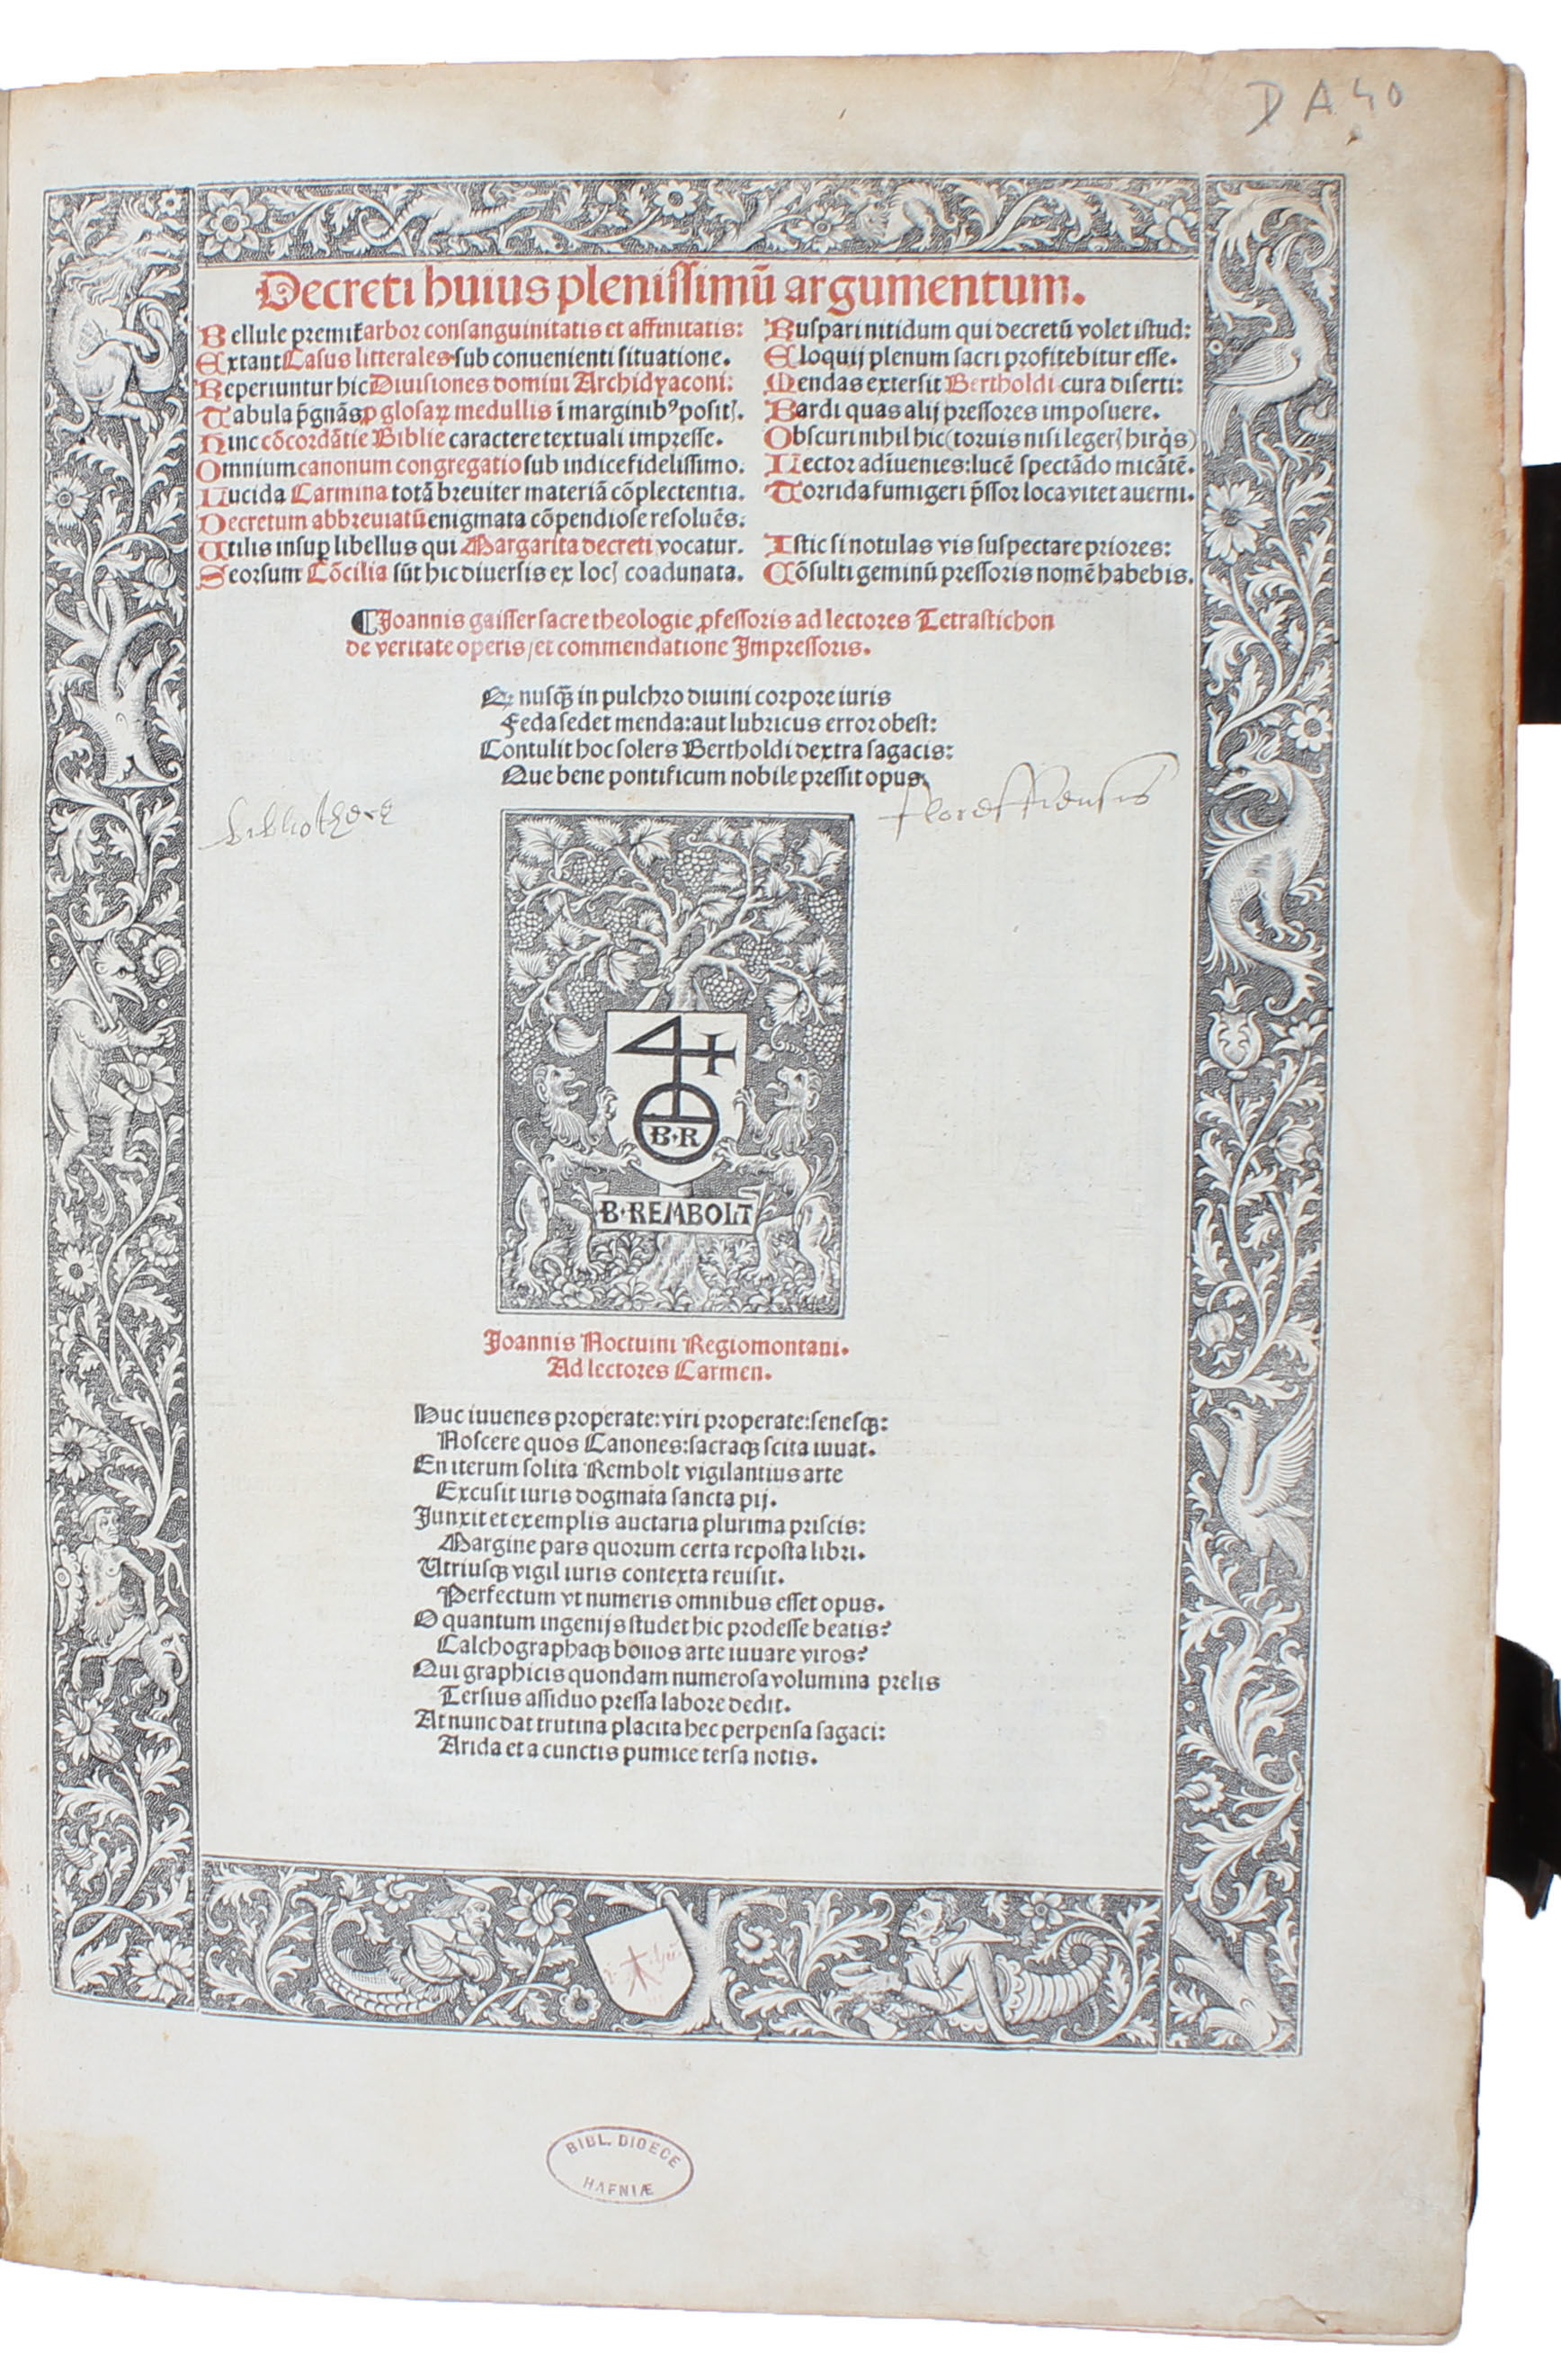 D A 40
Decreti huius plenissimū argumentum.
Bellule premiť arbor consanguinitatis et affinitatis:
Extant Casus litterales sub conuenienti situatione.
Reperiuntur hic Diuisiones domini Archidyaconi:
Tabula p̄gnās ꝓ glosaꝝ medullis ī marginibꝰ positꝭ.
Hinc cōcordātie Biblie caractere textuali impresse.
Omnium canonum congregatio sub indice fidelissimo.
Lucida Carmina totā breuiter materiā cōplectentia.
Decretum abbreuiatū enigmata cōpendiose resoluēs.
Utilis insuꝑ libellus qui Margarita decreti vocatur.
Seorsum Cōcilia sūt hic diuersis ex locꝭ coadunata.
Rus pari nitidum qui decretū volet istud:
Eloquij plenum sacri profitebitur esse.
Mendas extersit Bertholdi cura diserti:
Bardi quas alij pressores imposuere.
Obscuri nihil hic (toruis nisi legerꝭ hirq̇s)
Lector adīuenies: lucē spectādo micātē.
Torrida fumigeri p̄ssor loca vitet auerni.
Istic si notulas vis suspectare priores:
Cōsulti geminū pressoris nomē habebis.
¶Joannis gaisser sacre theologie ꝓfessoris ad lectores Tetrastichon
de veritate operis/et commendatione Impressoris.
Q nusq̄ in pulchro diuini corpore iuris
Feda sedet menda: aut lubricus error obest:
Contulit hoc solers Bertholdi dextra sagacis:
Que bene pontificum nobile pressit opus.
Bibliothece Floreffiensis
B·R
B·REMBOLT
Joannis Noctuini Regiomontani.
Ad lectores Carmen.
Huc iuuenes properate: viri properate: senesqꝫ:
Noscere quos Canones: sacraqꝫ scita iuuat.
En iterum solita Rembolt vigilantius arte
Excusit iuris dogmata sancta pij.
Junxit et exemplis auctaria plurima priscis:
Margine pars quorum certa reposta libri.
Utriusqꝫ vigil iuris contexta reuisit.
Perfectum vt numeris omnibus esset opus.
O quantum ingenijs studet hic prodesse beatis?
Calchographaqꝫ bonos arte iuuare viros?
Qui graphicis quondam numerosa volumina prelis
Tersius assiduo pressa labore dedit.
At nunc dat trutina placita hec perpensa sagaci:
Arida et a cunctis pumice tersa notis.
BIBL. DIOECE
HAFNIÆ